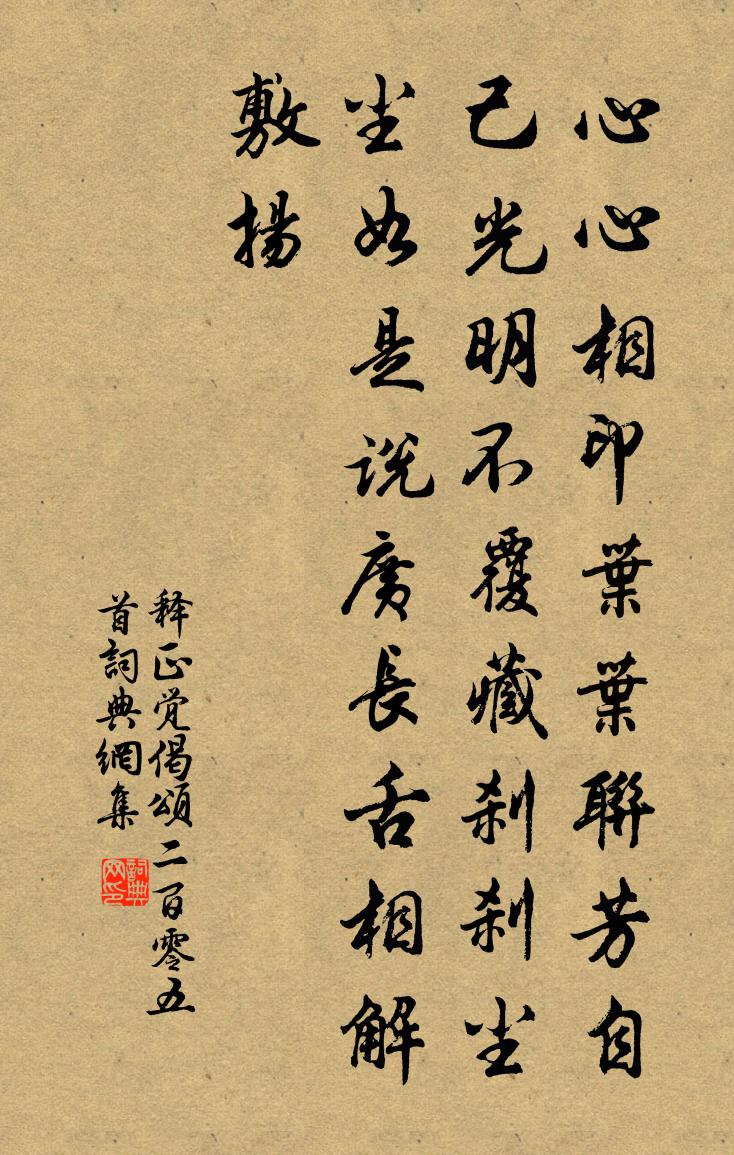 心心相印葉葉聯芳自
己光明不覆藏刹刹尘
尘如是说廣長舌相解
敷揚
释正觉偈頌二百零五
首詞典網集
詞典
网印